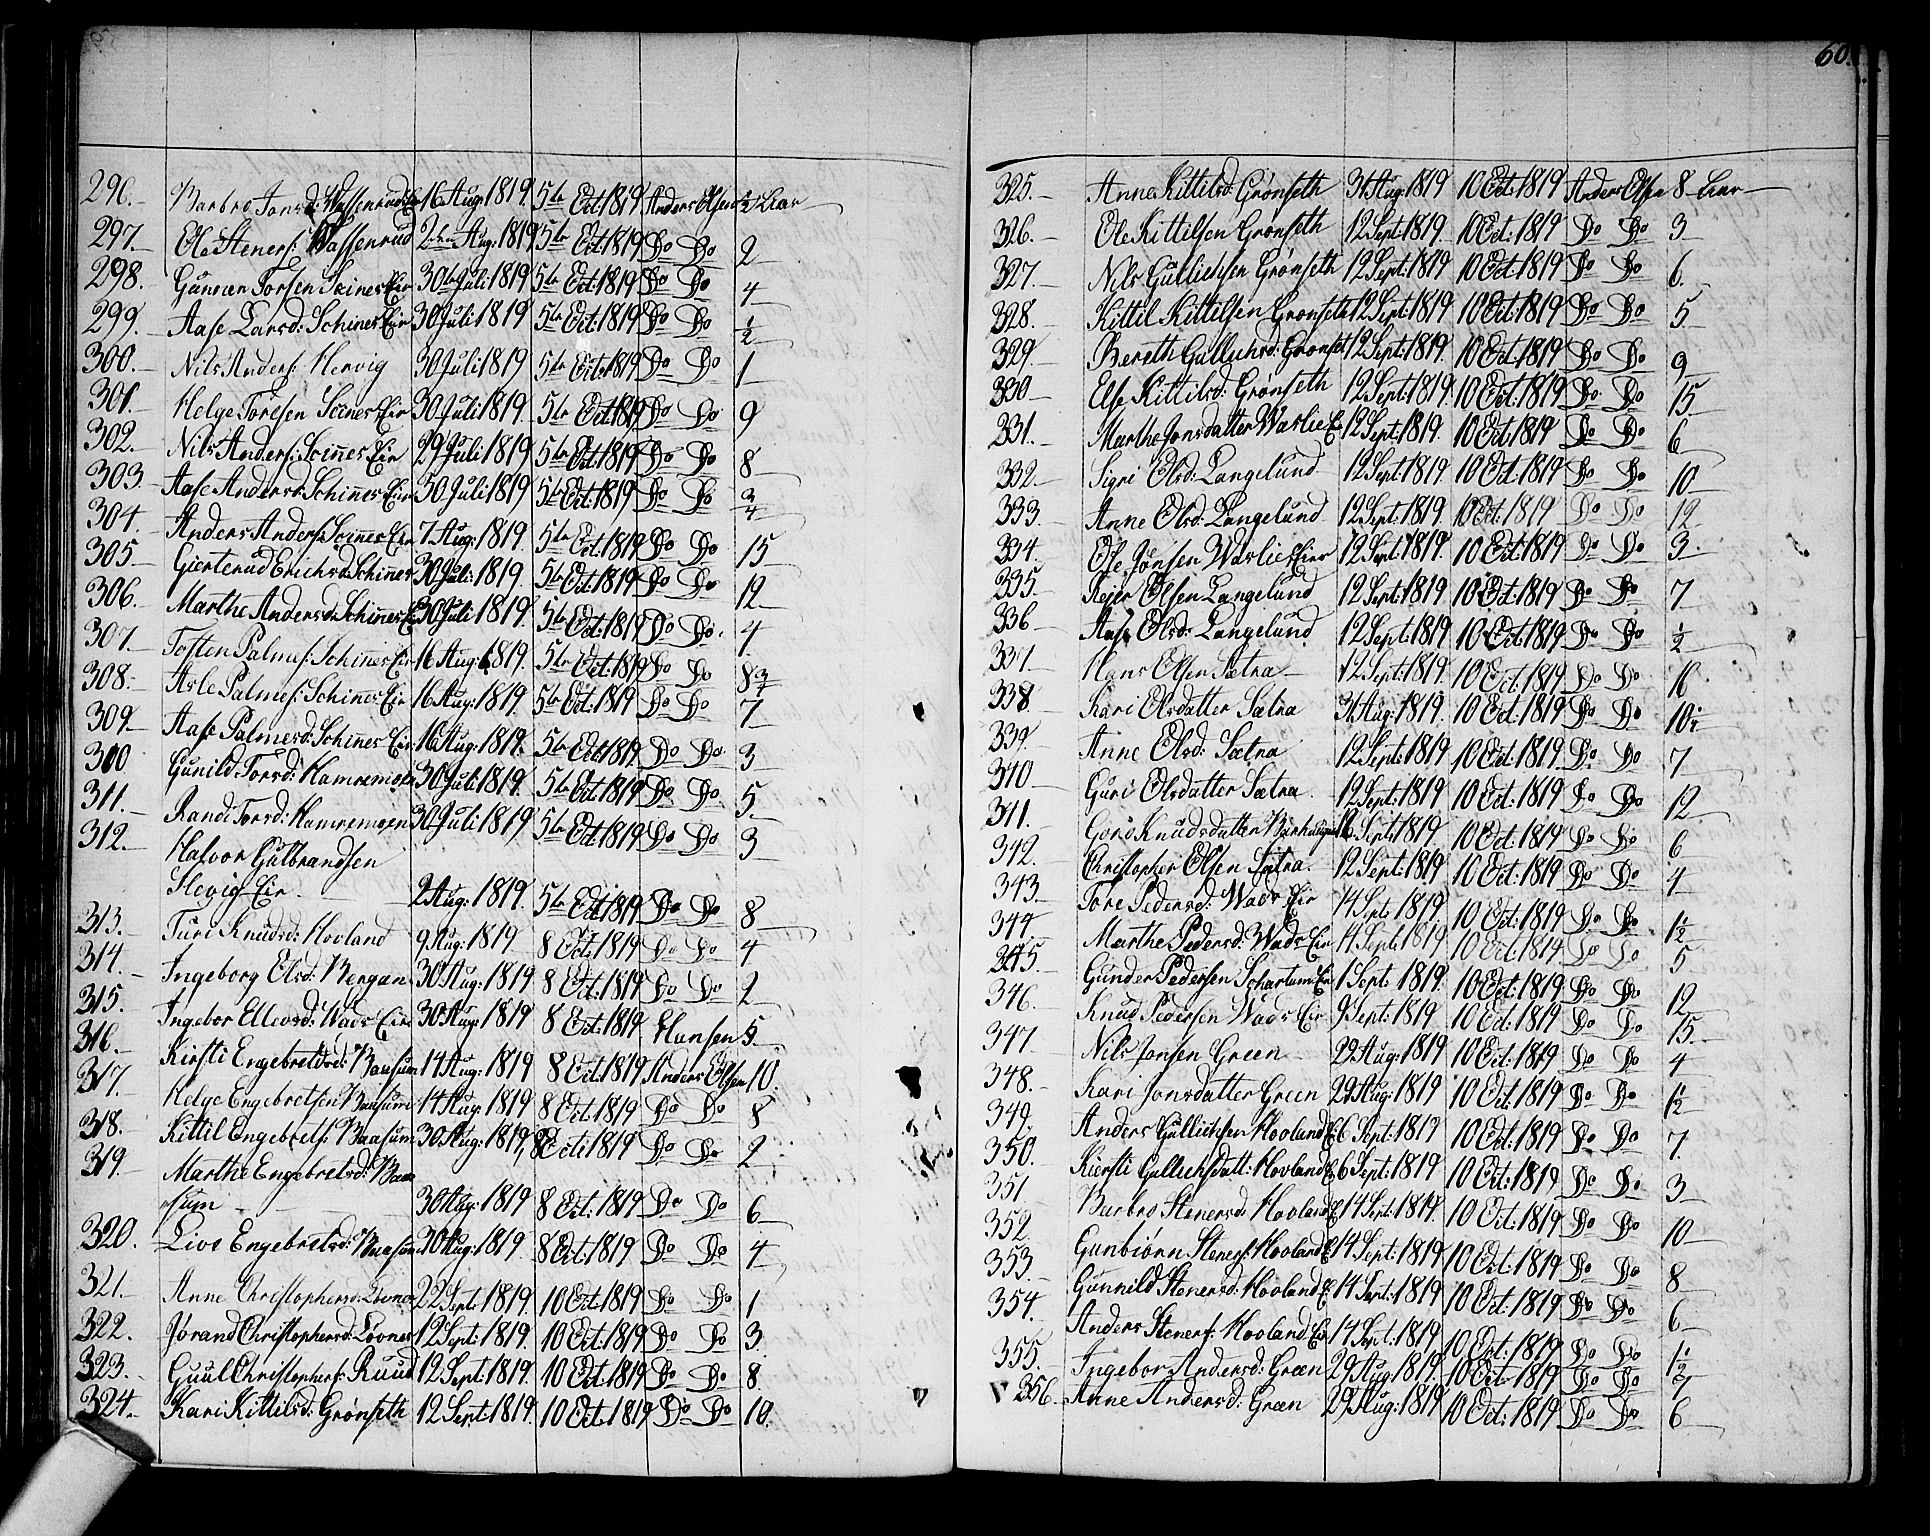 60.
296. Barbro Jonsd: Wassenrud Eir 16 Aug: 1819. 5te Oct: 1819 Anders Olsen 1/2 Aar
297. Ole Steners: Wassenrud 2den Aug: 1819 5te Oct: 1819 Do Do 2
298. Gunner Torsen Seines Eir 30te Juli 1819 5te Oct: 1819 Do Do 4
299. Aase Larsd: Schines Eir 30 Juli 1819 5te Oct: 1819 Do Do 1/2
300. Nils Anders: Hervig 30 Juli 1819 5te Oct: 1819 Do Do 1
301. Helge Toresen Seines Eir 30 Juli 1819. 5te Oct 1819 Do Do 9
302. Nils Anders: Seines Eir 29 Juli 1819 5te Oct: 1819 Do Do 8
303. Aase Andersd: Schines Eir 30 Juli 1819 5te Oct: 1819 Do Do 3/4
304. Anders Anders: Seines Eir 7 Aug: 1819. 5te Oct: 1819 Do Do 15
305. Gierterud Erichsd: Schines 30 Juli: 1819. 5te Oct: 1819 Do Do 12
306. Marthe Andersd: Schines E 30 Juli 1819. 5te Oct: 1819 Do Do. 4
307. Tosten Palmes: Schines Eir 16 Aug: 1819. 5te Oct: 1819 Do Do 8 3/4
308. Asle Palmes: Schines Eir 16 Aug: 1819 5te Oct: 1819 Do Do 7
309. Aase Palmersd: Schines Eir 16 Aug: 1819. 5te Oct: 1819 Do Do 3
300 Gunild Torsd: Hamremoen 30 Juli 1819. 5te Oct: 1819 Do Do 5.
311. Randi Torsd: Hamremoen 30 Juli 1819 5te Oct 1819 Do Do 3
312. Halvor Gulbrandsen
Hevig Eir. 2 Aug: 1819. 5te Oct 1819 Do Do 8
313. Turi Knudsd: Hovland 9 Aug: 1819 8 Oct: 1819 Do Do 4
314. Ingeborg Elsd: Bergan 30 Aug: 1819 8 Oct: 1819 Do Do 2
315. Ingebor Ellevsd: Wads Eir 30 Aug: 1819 8 Oct: 1819 Hansen 5
316. Kirsti Engebretsd: Baasum 14 Aug: 1819 8 Oct: 1819 Anders Olsen 10.
317. Helge Engebretsen Baasum 14 Aug: 1819 8 Oct: 1819 Do Do 8
318. Kittil Engebrets: Baasum 30 Aug: 1819, 8 Oct: 1819 Do Do 2
319. Marthe Engebretsd: Baa
sum 30 Aug: 1819 8 Oct: 1819 Do Do 6
320. Live Engebretsd: Baasum 30 Aug: 1819. 8 Oct: 1819 Do Do 4
321. Anne Christophersd: Lovnes 22 Sept: 1819. 10 Oct: 1819 Do Do 1
322. Jorand Christophersd: Lovnes 12 Sept: 1819. 10 Oct: 1819 Do Do 3.
323. Guul Christophers: Ruud 12 Sept: 1819. 10 Oct: 1819 Do Do 8
324. Kari Kittilsd: Grønseth 12 Sept: 1819. 10 Oct: 1819 Do Do 10.
325. Anne Kittilsd: Grønseth 31 Aug: 1819 10 Oct: 1819 Anders Olsen 8 Aar
326. Ole Kittilsen Grønseth 12 Sept: 1819 10 Oct: 1819 Do Do 3
327. Nils Gullichsen Grønseth 12 Sept: 1819 10 Oct: 1819 Do Do 6.
328. Kittil Kittelsen Grønseth 12 Sept: 1819 10 Oct: 1819 Do Do 5
329. Bereth Gullichsd: Grønset 12 Sept: 1819. 10 Oct: 1819 Do Do 9
330 Else Kittilsd: Grønseth 12 Sept: 1819. 10 Oct: 1819 Do Do 15
331. Marthe Jonsdatter Waslie E 12 Sept: 1819. 10 Oct 1819 Do Do 6
332. Sigri Olsd: Langelund 12 Sept: 1819 10 Oct. 1819 Do Do 10
333. Anne Olsd: Langelund 12 Sept: 1819. 10 Oct: 1819 Do Do 12
334. Ole Jonsen Waslie Eir 12 Sept: 1819 10 Oct: 1819 Do Do 3.
335. Reier Olsen Langelund 12 Sept: 1819 10 Oct: 1819 Do Do 7
336 Aase Olsd: Langelund 12 Sept: 1819 10 Oct: 1819 Do Do 1/2
337 Hans Olsen Sætra 12 Sept: 1819. 10 Oct: 1819 Do Do 16
338 Kari Olsdatter Sætra 31 Aug: 1819. 10 Oct. 1819 Do Do 10 1/2
339. Anne Olsd: Sætra 12 Sept: 1819 10 Oct: 1819 Do Do 7
340 Guri Olsdatter Sætra. 12 Sept: 1819 10 Oct: 1819 Do Do 12
311. Goro Knudsdatter 12 Sept: 1819 10 Oct: 1819 Do Do 6
342. Christopher Olsen Sætra. 12 Sept: 1819 10 Oct: 1819 Do Do 4
343. Tore Pedersd: Wads Eir 14 Sept: 1819. 10 Oct: 1819 Do Do 1/2
344. Marthe Pedersd: Wads Eir 14 Sept: 1819 10 Oct: 1819 Do Do 5
345. Gunder Pedersen Schartum Eir 1 Sept: 1819. 10 Oct: 1819 Do Do 12
346. Knud Pedersen Wads Eir 9 Sept: 1819 10 Oct: 1819 Do Do 15.
347 Nils Jonsen Green 29 Aug: 1819 10 Oct: 1819 Do Do 4
348. Kari Jonsdatter Green 29 Aug: 1819 10 Oct: 1819 Do Do 1 1/2
349. Anders Gullichsen Hovland E 6 Sept: 1819 10 Oct: 1819 Do Do 7.
350. Kiersti Gullichsdatt: Hovland E 6 Sept: 1819 10 Oct: 1819 Do Do 3
351 Barbro Stenersd: Hovland E 14 Sept: 1819. 10 Oct: 1819 Do Do 10
352. Gunbiørn Steners: Hovland E 14 Sept: 1819 10 Oct: 1819 Do Do 8
353. Gunnild Stenersd: Hovland E 14 Sept: 1819 10 Oct: 1819 Do Do 6
354. Anders Steners: Hovland Eir 14 Sept: 1819 10 Oct: 1819 Do Do 1/2
355. Ingebor Andersd: Green 29 Aug: 1819. 10 Oct: 1819 Do Do 7
356. Anne Andersd: Green 29 Aug: 1819 10 Oct: 1819 Do Do 6